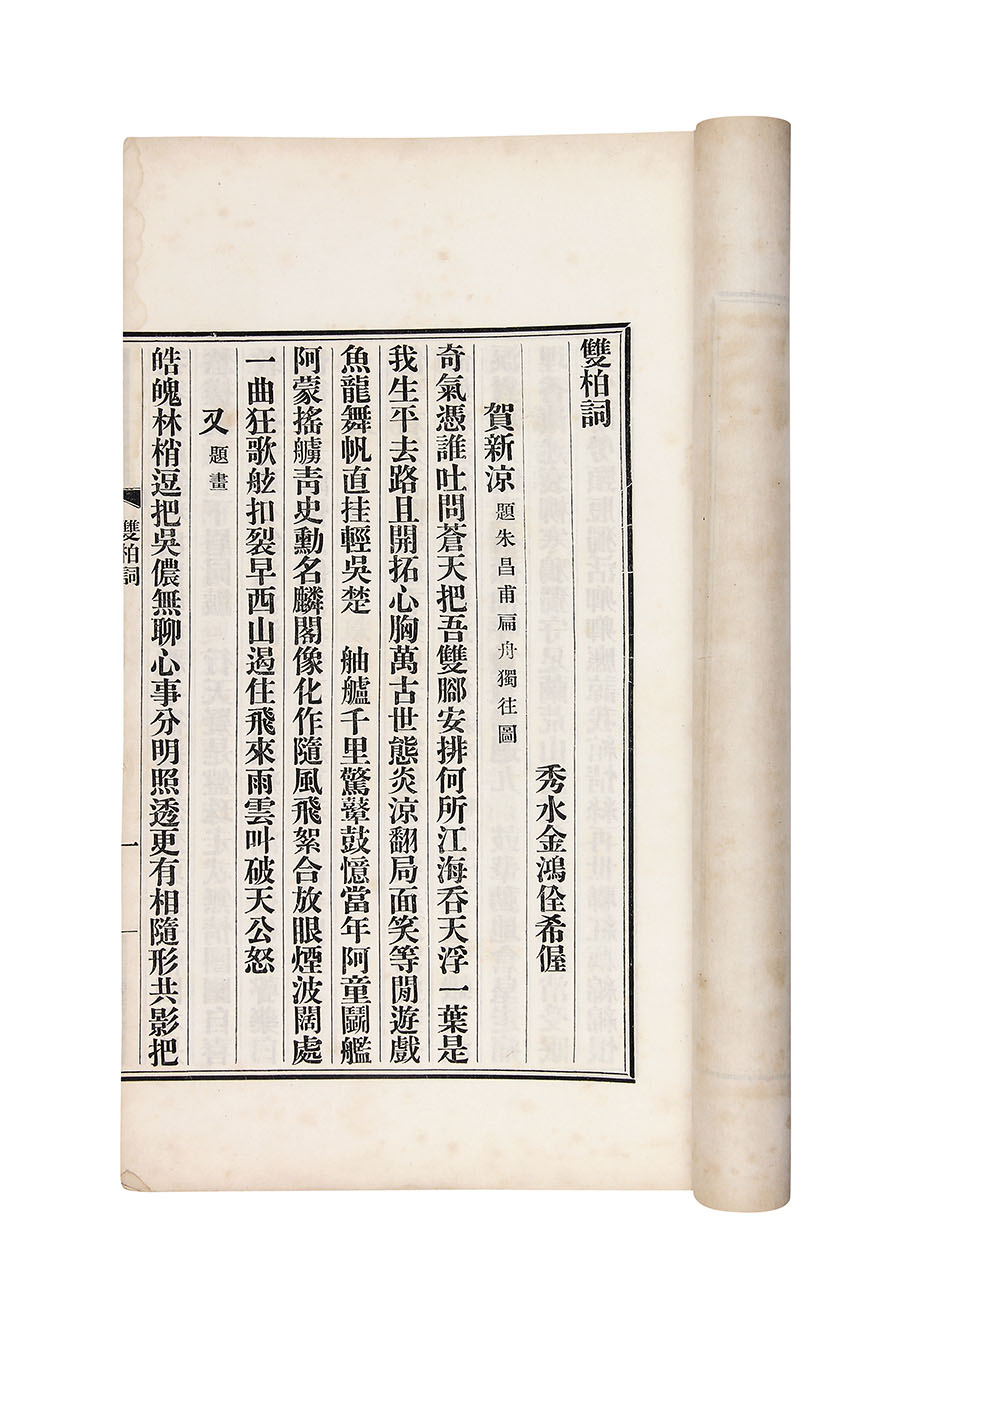 雙柏詞
秀水金鴻佺希偓
賀新涼題朱昌甫扁舟獨往圖
奇氣憑誰吐問蒼天把吾雙腳安排何所江海吞天浮一葉是
我生平去路且開拓心胸萬古世態炎涼翻局面笑等閒遊戲
魚龍舞帆直挂輕吳楚　舳艫千里驚鼙鼓憶當年阿童鬬艦
阿蒙搖艣靑史勳名麟閣像化作隨風飛絮合放眼煙波闊處
一曲狂歌舷扣裂早西山遏住飛來雨雲叫破天公怒
又題畫
皓魄林梢逗把吳儂無聊心事分明照透更有相隨形共影把
雙柏詞
一